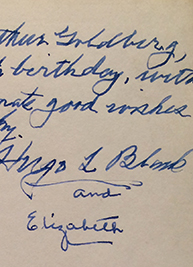 thur Goldberg,
birthday, with
rate good wishes
by
Hugo L Black
and
Elizabeth